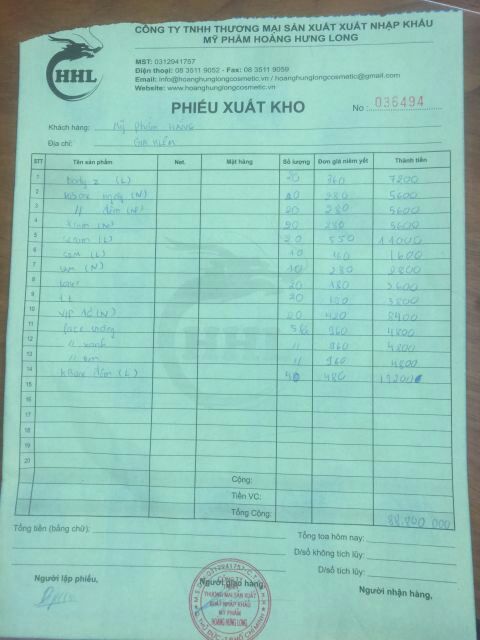 CÔNG TY TNHH THƯƠNG MẠI SẢN XUẤT XUẤT NHẬP KHẨU
MỸ PHẨM HOÀNG HƯNG LONG
HHL
MST: 0312941757
Điện thoại: 08 3511 9052 - Fax: 08 3511 9059
Email: info@hoanghunglongcosmetic.vn / hoanghunglongcosmetic@gmail.com
Website: www.hoanghunglongcosmetic.vn
PHIẾU XUẤT KHO
No : 036494
Khách hàng: Mỹ phẩm HẰNG
Địa chỉ: GIA KIỆM
STT Tên sản phẩm Net. Mặt hàng Số lượng Đơn giá niêm yết Thành tiền
1 body 2 (L) 20 360 7200
2 kBone ngày (N) 20 280 5600
3 // đêm (N) 20 280 5600
4 (N) 20 280 5600
5 serum (L) 20 550 11000
6 (L) 10 160 1600
7 (N) 10 280 2800
8 20 180 3600
9 20 190 3800
10 VIP (N) 20 420 8400
11 face 960 4800
12 // xanh // 960 4800
13 // // 960 4800
14 kBone đêm (L) 40 480 19200
15
16
17
18
19
20
Cộng:
Tiền VC:
Tổng Cộng: 88.800 000
Tổng tiền (bằng chữ):
Tổng toa hôm nay:
D/số không tích lũy:
D/số tích lũy:
Người lập phiếu, Người giao hàng, Người nhận hàng,
M.S.D.N:0312941757-C.T.T.N.H.H
CÔNG TY
TNHH
THƯƠNG MẠI SẢN XUẤT
XUẤT NHẬP KHẨU
MỸ PHẨM
HOÀNG HƯNG LONG
Q. THỦ ĐỨC - T.P HỒ CHÍ MINH